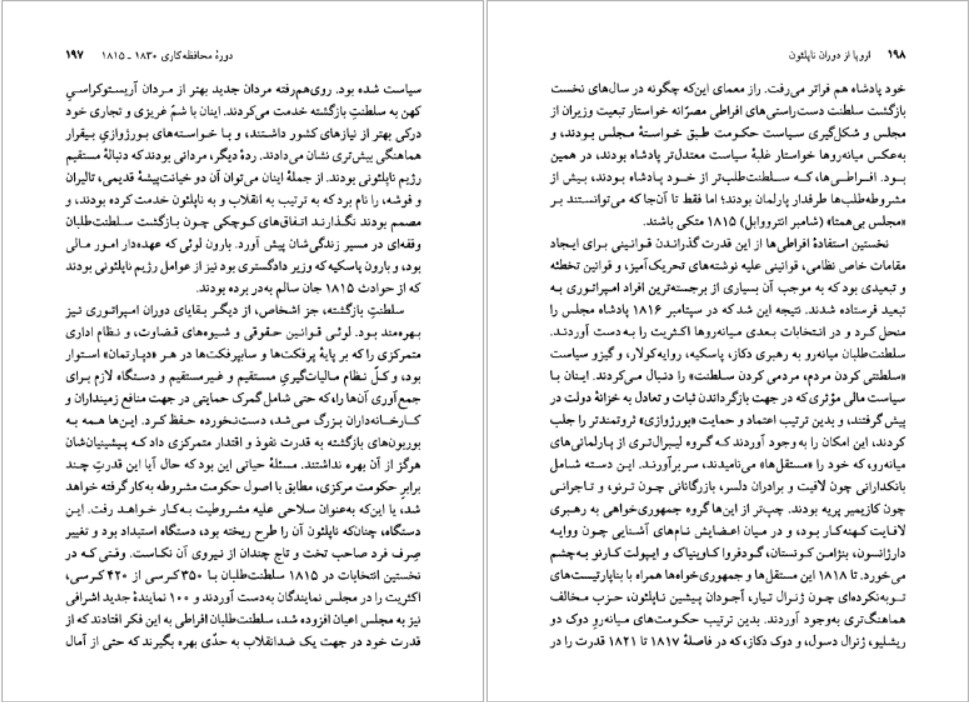 دورهٔ محافظه‌کاری ۱۸۳۰ ـ ۱۸۱۵ ۱۹۷
سیاست شده بود. روی‌هم‌رفته مردان جدید بهتر از مردان آریستوکراسیِ
کهن به سلطنتِ بازگشته خدمت می‌کردند. اینان با شمّ غریزی و تجاری خود
درکی بهتر از نیازهای کشور داشتند، و با خواسته‌های بورژوازیِ بیقرار
هماهنگی بیش‌تری نشان می‌دادند. ردهٔ دیگر، مردانی بودند که دنبالهٔ مستقیم
رژیم ناپلئونی بودند. از جملهٔ اینان می‌توان آن دو خیانت‌پیشهٔ قدیمی، تالیران
و فوشه، را نام برد که به ترتیب به انقلاب و به ناپلئون خدمت کرده بودند، و
مصمم بودند نگذارند اتفاق‌های کوچکی چون بازگشت سلطنت‌طلبان
وقفه‌ای در مسیر زندگی‌شان پیش آورد. بارون لوئی که عهده‌دار امور مالی
بود، و بارون پاسکیه که وزیر دادگستری بود نیز از عوامل رژیم ناپلئونی بودند
که از حوادث ۱۸۱۵ جان سالم به‌در برده بودند.
سلطنتِ بازگشته، جز اشخاص، از دیگر بقایای دوران امپراتوری نیز
بهره‌مند بود. لوئی قوانین حقوقی و شیوه‌های قضاوت، و نظام اداری
متمرکزی را که بر پایهٔ پرفکت‌ها و ساب‌پرفکت‌ها در هر «دپارتمان» استوار
بود، و کلّ نظام مالیات‌گیریِ مستقیم و غیرمستقیم و دستگاه لازم برای
جمع‌آوری آن‌ها را، که حتی شامل گمرک حمایتی در جهت منافع زمینداران و
کارخانه‌داران بزرگ می‌شد، دست‌نخورده حفظ کرد. این‌ها همه به
بوربون‌های بازگشته به قدرت نفوذ و اقتدار متمرکزی داد که پیشینیان‌شان
هرگز از آن بهره نداشتند. مسئلهٔ حیاتی این بود که حال آیا این قدرتِ چند
برابرِ حکومت مرکزی، مطابق با اصول حکومت مشروطه به‌کار گرفته خواهد
شد، یا این‌که به‌عنوان سلاحی علیه مشروطیت به‌کار خواهد رفت. این
دستگاه، چنان‌که ناپلئون آن را طرح ریخته بود، دستگاه استبداد بود و تغییر
صِرف فرد صاحب تخت و تاج چندان از نیروی آن نکاست. وقتی که در
نخستین انتخابات در ۱۸۱۵ سلطنت‌طلبان با ۳۵۰ کرسی از ۴۲۰ کرسی،
اکثریت را در مجلس نمایندگان به‌دست آوردند و ۱۰۰ نمایندهٔ جدید اشرافی
نیز به مجلس اعیان افزوده شد، سلطنت‌طلبان افراطی به این فکر افتادند که از
قدرت خود در جهت یک ضدانقلاب به حدّی بهره بگیرند که حتی از آمال
۱۹۸ اروپا از دوران ناپلئون
خود پادشاه هم فراتر می‌رفت. راز معمای این‌که چگونه در سال‌های نخست
بازگشت سلطنت دست‌راستی‌های افراطی مصرّانه خواستار تبعیت وزیران از
مجلس و شکل‌گیری سیاست حکومت طبق خواستهٔ مجلس بودند، و
به‌عکس میانه‌روها خواستار غلبهٔ سیاست معتدل‌تر پادشاه بودند، در همین
بود. افراطی‌ها، که سلطنت‌طلب‌تر از خود پادشاه بودند، بیش از
مشروطه‌طلب‌ها طرفدار پارلمان بودند؛ اما فقط تا آن‌جا که می‌توانستند بر
«مجلس بی‌همتا» (شامبر انترووابل) ۱۸۱۵ متکی باشند.
نخستین استفادهٔ افراطی‌ها از این قدرت گذراندن قوانینی برای ایجاد
مقامات خاص نظامی، قوانینی علیه نوشته‌های تحریک‌آمیز، و قوانین تخطئه
و تبعیدی بود که به موجب آن بسیاری از برجسته‌ترین افراد امپراتوری به
تبعید فرستاده شدند. نتیجه این شد که در سپتامبر ۱۸۱۶ پادشاه مجلس را
منحل کرد و در انتخابات بعدی میانه‌روها اکثریت را به دست آوردند.
سلطنت‌طلبان میانه‌رو به رهبری دکاز، پاسکیه، روایه‌کولار، و گیزو سیاست
«سلطنتی کردن مردم، مردمی کردن سلطنت» را دنبال می‌کردند. اینان با
سیاست مالی مؤثری که در جهت بازگرداندن ثبات و تعادل به خزانهٔ دولت در
پیش گرفتند، و بدین ترتیب اعتماد و حمایت «بورژوازی» ثروتمندتر را جلب
کردند، این امکان را به وجود آوردند که گروه لیبرال‌تری از پارلمانی‌های
میانه‌رو، که خود را «مستقل‌ها» می‌نامیدند، سر برآورند. این دسته شامل
بانکدارانی چون لافیت و برادران دلسر، بازرگانانی چون ترنو، و تاجرانی
چون کازیمیر پریه بودند. چپ‌تر از این‌ها گروه جمهوری‌خواهی به رهبری
لافایت کهنه‌کار بود، و در میان اعضایش نام‌های آشنایی چون ووایه
دارژانسون، بنژامن کونستان، گودفروا کاوینیاک و ایپولت کارنو به‌چشم
می‌خورد. تا ۱۸۱۸ این مستقل‌ها و جمهوری‌خواه‌ها همراه با بناپارتیست‌های
توبه‌نکرده‌ای چون ژنرال تیار، آجودان پیشین ناپلئون، حزب مخالف
هماهنگ‌تری به‌وجود آوردند. بدین ترتیب حکومت‌های میانه‌روِ دوک دو
ریشلیو، ژنرال دسول، و دوک دکاز، که در فاصلهٔ ۱۸۱۷ تا ۱۸۲۱ قدرت را در